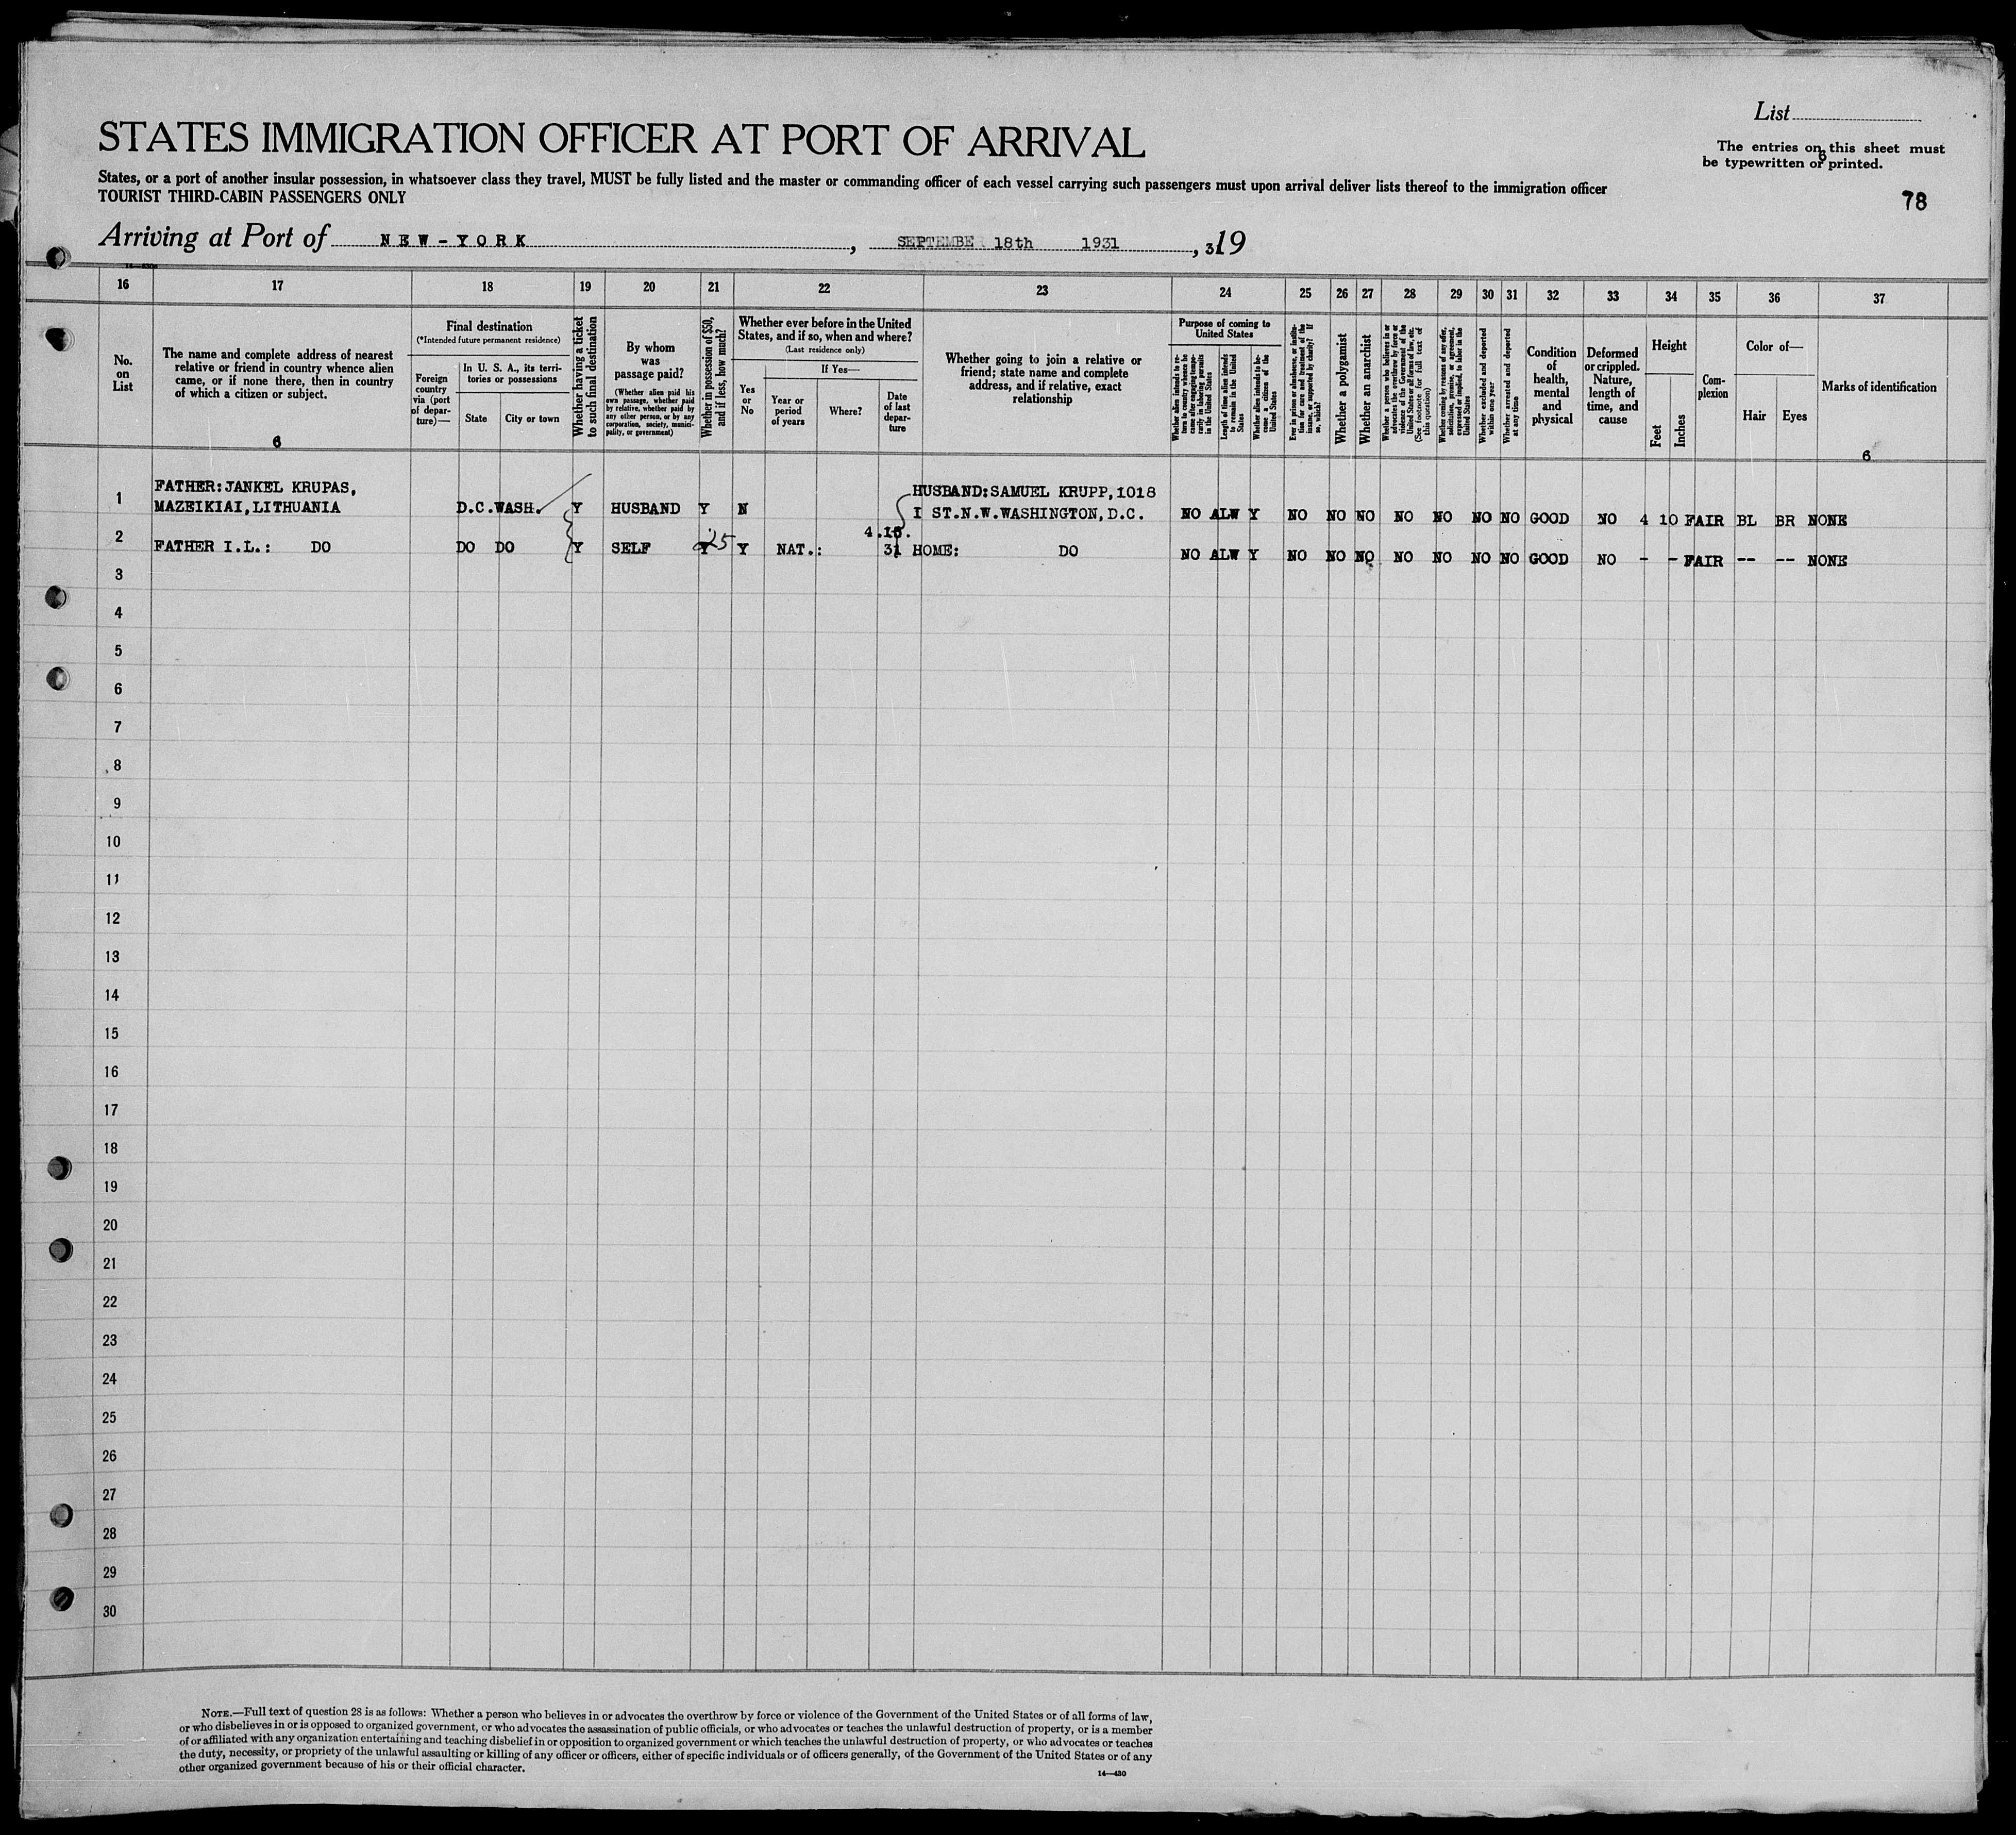 List
STATES IMMIGRATION OFFICER AT PORT OF ARRIVAL
The entries on this sheet must
be typewritten or printed.
States, or a port of another insular possession, in whatsoever class they travel, MUST be fully listed and the master or commanding officer of each vessel carrying such passengers must upon arrival deliver lists thereof to the immigration officer
TOURIST THIRD-CABIN PASSENGERS ONLY
78
Arriving at Port of NEW-YORK, SEPTEMBER 18th 1931, 319
16 17 18 19 20 21 22 23 24 25 26 27 28 29 30 31 32 33 34 35 36 37
No.
on
List
The name and complete address of nearest
relative or friend in country whence alien
came, or if none there, then in country
of which a citizen or subject.
6
Final destination
(*Intended future permanent residence)
Foreign
country
via (port
of depar-
ture)—
In U. S. A., its terri-
tories or possessions
State
City or town
Whether having a ticket
to such final destination
By whom
was
passage paid?
(Whether alien paid his
own passage, whether paid
by relative, whether paid by
any other person, or by any
corporation, society, munici-
pality, or government)
Whether in possession of $50,
and if less, how much?
Whether ever before in the United
States, and if so, when and where?
(Last residence only)
Yes
or
No
If Yes—
Year or
period
of years
Where?
Date
of last
depar-
ture
Whether going to join a relative or
friend; state name and complete
address, and if relative, exact
relationship
Purpose of coming to
United States
Whether alien intends to re-
turn to country whence he
came after engaging tempo-
rarily in laboring pursuits
in the United States
Length of time alien intends
to remain in the United
States
Whether alien intends to be-
come a citizen of the
United States
Ever in prison or almshouse, or institu-
tion for care and treatment of the
insane, or supported by charity? If
so, which?
Whether a polygamist
Whether an anarchist
Whether a person who believes in or
advocates the overthrow by force or
violence of the Government of the
United States or all forms of law, etc.
(See footnote for full text of
this question)
Whether coming by reasons of any offer,
solicitation, promise, or agreement,
expressed or implied, to labor in the
United States
Whether excluded and deported
within one year
Whether arrested and deported
at any time
Condition
of
health,
mental
and
physical
Deformed
or crippled.
Nature,
length of
time, and
cause
Height
Feet
Inches
Com-
plexion
Color of—
Hair
Eyes
Marks of identification
6
1
FATHER:JANKEL KRUPAS,
MAZEIKIAI,LITHUANIA D.C. WASH. Y HUSBAND Y N
HUSBAND:SAMUEL KRUPP,1018
I ST.N.W.WASHINGTON,D.C. NO ALW Y NO NO NO NO NO NO NO GOOD NO 4 10 FAIR BL BR NONE
2
FATHER I.L.: DO DO DO Y SELF Y 25 Y NAT.: 31 HOME: DO NO ALW Y NO NO NO NO NO NO NO GOOD NO - - FAIR -- -- NONE
3
4
5
6
7
8
9
10
11
12
13
14
15
16
17
18
19
20
21
22
23
24
25
26
27
28
29
30
NOTE.—Full text of question 28 is as follows: Whether a person who believes in or advocates the overthrow by force or violence of the Government of the United States or of all forms of law,
or who disbelieves in or is opposed to organized government, or who advocates the assassination of public officials, or who advocates or teaches the unlawful destruction of property, or is a member
of or affiliated with any organization entertaining and teaching disbelief in or opposition to organized government or which teaches the unlawful destruction of property, or who advocates or teaches
the duty, necessity, or propriety of the unlawful assaulting or killing of any officer or officers, either of specific individuals or of officers generally, of the Government of the United States or of any
other organized government because of his or their official character.
14—430